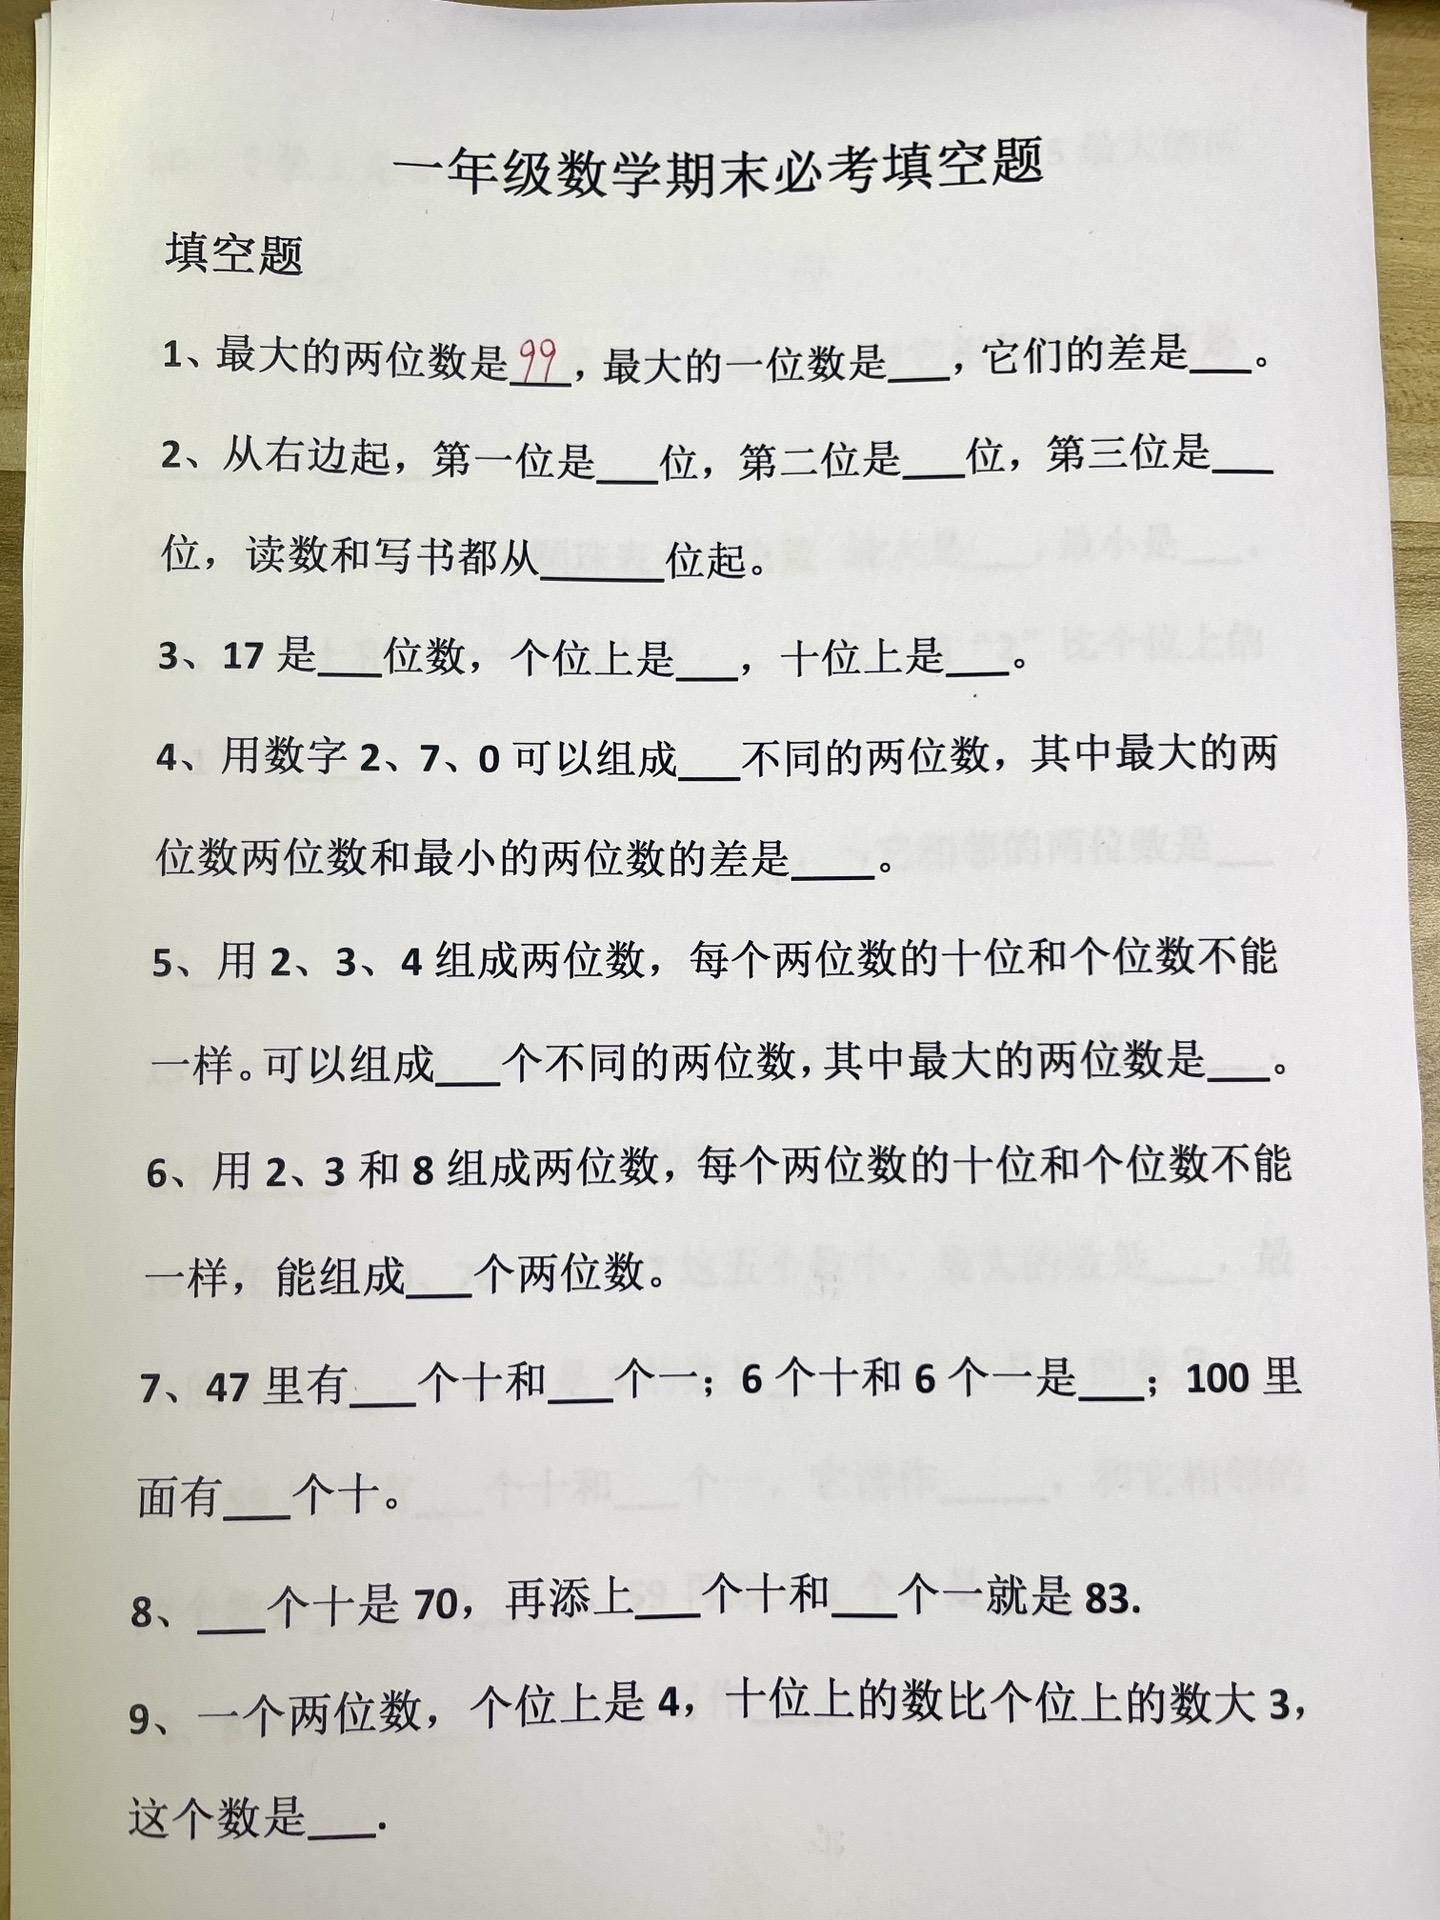 一年级数学期末必考填空题
填空题
1、最大的两位数是99，最大的一位数是___，它们的差是___。
2、从右边起，第一位是___位，第二位是___位，第三位是___
位，读数和写书都从______位起。
3、17是___位数，个位上是___，十位上是___。
4、用数字2、7、0可以组成___不同的两位数，其中最大的两
位数两位数和最小的两位数的差是____。
5、用2、3、4组成两位数，每个两位数的十位和个位数不能
一样。可以组成___个不同的两位数，其中最大的两位数是___。
6、用2、3和8组成两位数，每个两位数的十位和个位数不能
一样，能组成___个两位数。
7、47里有___个十和___个一；6个十和6个一是___；100里
面有___个十。
8、___个十是70，再添上___个十和___个一就是83.
9、一个两位数，个位上是4，十位上的数比个位上的数大3，
这个数是___.